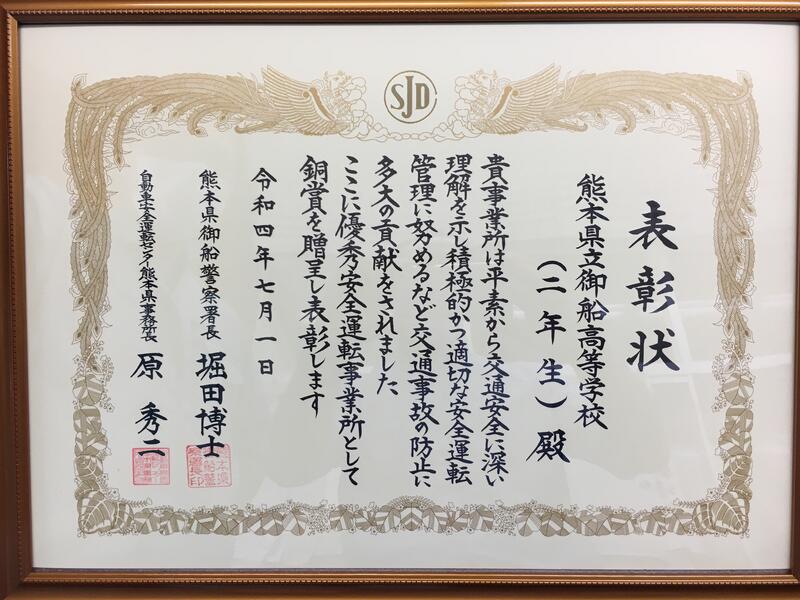 SJD
表彰状
熊本県立御船高等学校
(二年生)殿
貴事業所は平素から交通安全に深い
理解を示し積極的かつ適切な安全運転
管理に努めるなど交通事故の防止に
多大の貢献をされました
ここに優秀安全運転事業所として
銅賞を贈呈し表彰します
令和四年七月一日
熊本県御船警察署長 堀田博士
自動車安全運転センター熊本県事務所長 原秀二